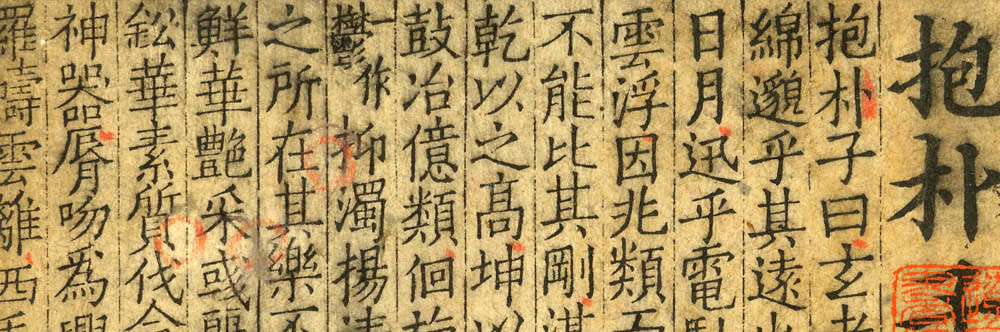 抱朴
抱朴子曰玄
綿邈乎其遠
日月迅乎電
雲浮因兆類
不能比其剛湛
乾以之高坤以
鼓冶億類佪
一作欝抑濁揚清
之所在其樂不
鮮華艷采或麗
鈆華素質伐命
神器脣吻為
羅幬雲離西